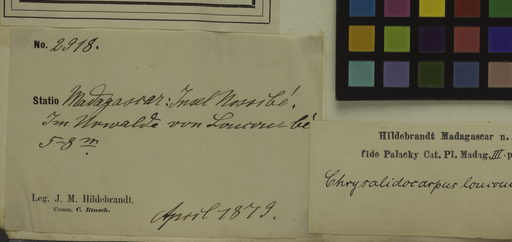 No. 2918.
Statio Madagascar: Insel Nossibé.
Im Urwalde von Loucoubé
5-8 m
Leg. J. M. Hildebrandt.
Comm. C. Rensch.
April 1879.
Hildebrandt Madagascar n.
fide Palacky Cat. Pl. Madag. III. p
Chrysalidocarpus loucou